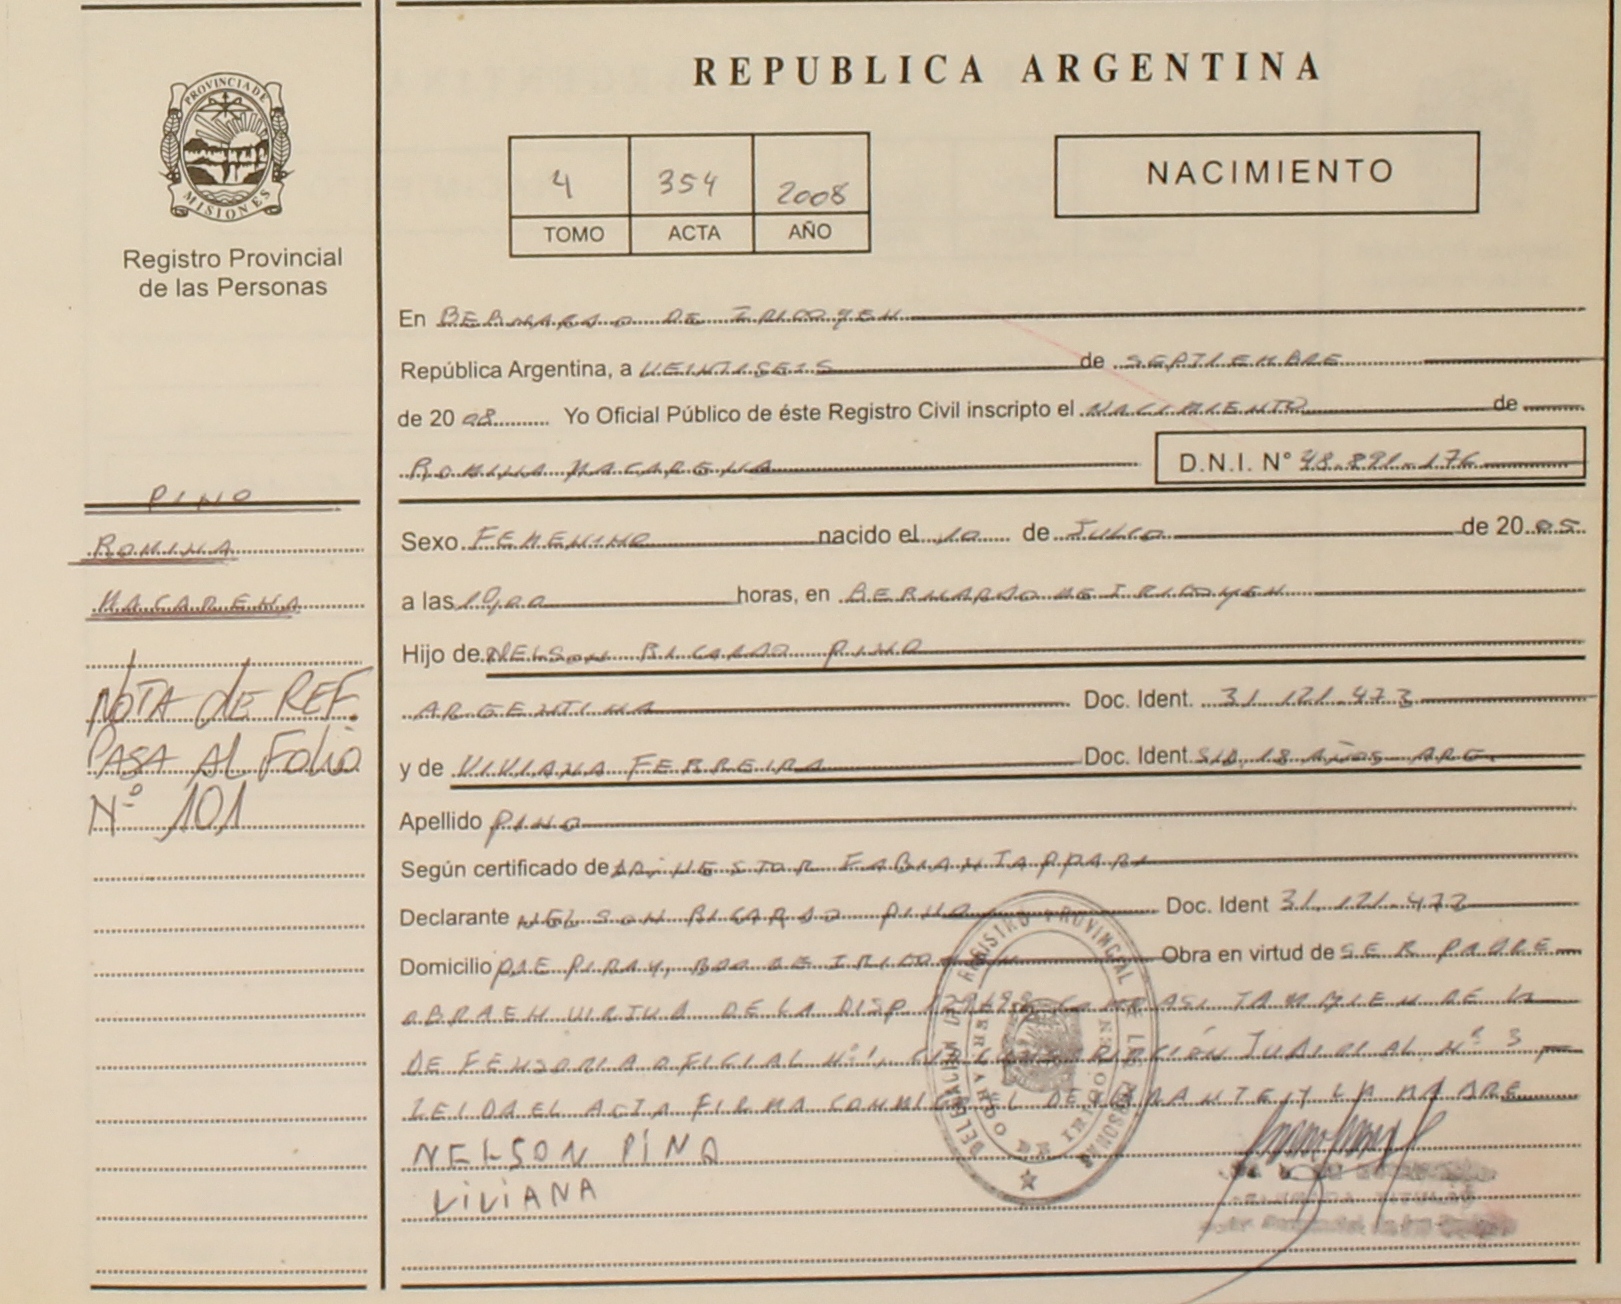 PROVINCIA DE
MISIONES
Registro Provincial
de las Personas
REPUBLICA ARGENTINA
4 354 2008
TOMO ACTA AÑO
NACIMIENTO
En BERNARDO DE IRIGOYEN
República Argentina, a VEINTISEIS de SEPTIEMBRE
de 2008 Yo Oficial Público de éste Registro Civil inscripto el NACIMIENTO de
ROMINA MACARENA D.N.I. N° 48.891.176
PINO
ROMINA
MACARENA
NOTA de REF.
PASA Al Folio
Nº 101
Sexo FEMENINO nacido el 10 de JULIO de 2005
a las horas, en BERNARDO DE IRIGOYEN
Hijo de NELSON RICARDO PINO
ARGENTINA Doc. Ident. 31.121.473
y de VIVIANA FERREIRA Doc. Ident S/D, 18 AÑOS ARG.
Apellido PINO
Según certificado de DR. NESTOR FABIAN
Declarante NELSON RICARDO PINO Doc. Ident 31.121.473
Domicilio PJE PIRAY, BDO DE IRIGOYEN Obra en virtud de SER PADRE
OBRA EN VIRTUD DE LA DISP ASI TAMBIEN DE LA
DEFENSORIA OFICIAL Nº 1, JUDICIAL Nº 3
LEIDA EL ACTA FIRMA CONMIGO EL DECLARANTE Y LA MADRE
NELSON PINO
ViViANA
DELEGACION DEL REGISTRO PROVINCIAL DE LAS PERSONAS
BERNARDO DE IRIGOYEN